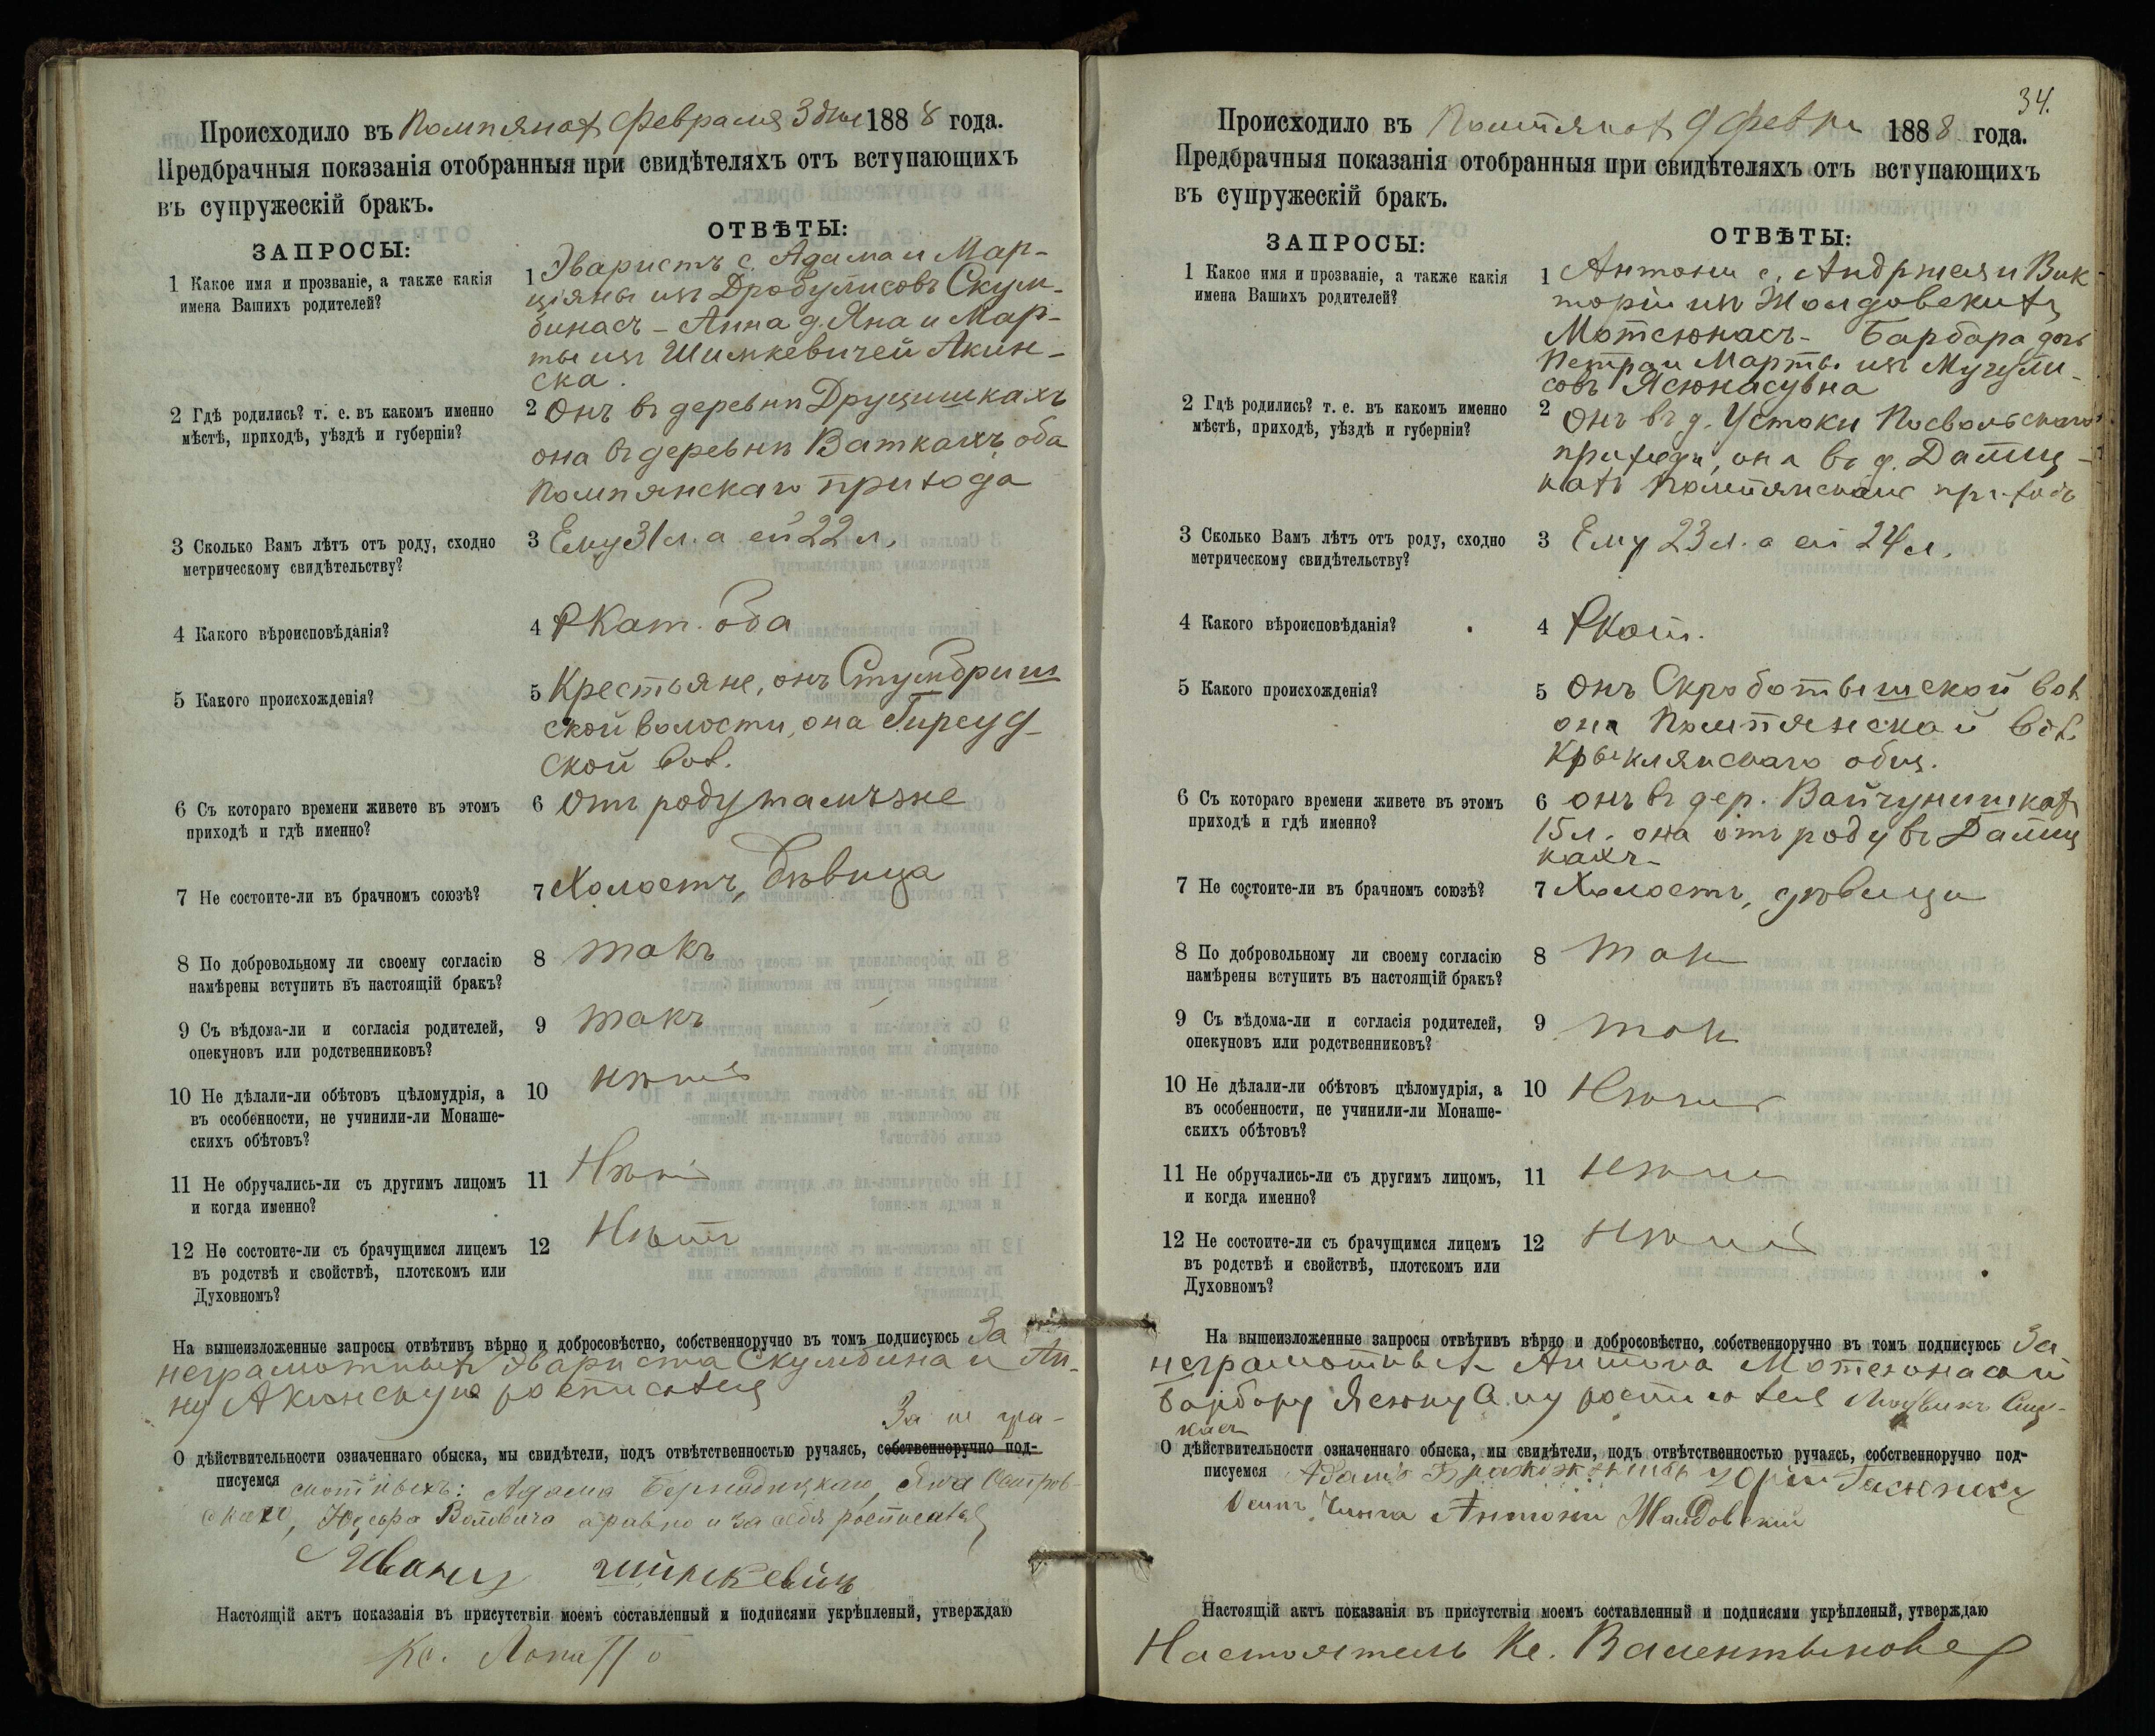 Происходило въ Помпянах Февраля 3 дня 1888 года.
Предбрачныя показанія отобранныя при свидѣтеляхъ отъ вступающихъ
въ супружескій бракъ.
ЗАПРОСЫ:
ОТВѢТЫ:
1 Какое имя и прозваніе, а также какія
имена Вашихъ родителей?
1 Эваристъ с. Адама и Мар-
ціяны изъ Дробулисовъ Скум-
бинасъ - Анна д. Яна и Мар-
ты изъ Шимкевичей Акин-
ска.
2 Гдѣ родились? т. е. въ какомъ именно
мѣстѣ, приходѣ, уѣздѣ и губерніи?
2 Онъ въ деревнѣ Друцишкахъ
она въ деревнѣ Ваткахъ, оба
Помпянскаго прихода
3 Сколько Вамъ лѣтъ отъ роду, сходно
метрическому свидѣтельству?
3 Ему 31 л. а ей 22 л.
4 Какого вѣроисповѣданія?
4 Р Кат. оба
5 Какого происхожденія?
5 Крестьяне, онъ Стумбриш
ской волости, она Гирсуд-
ской вол.
6 Съ котораго времени живете въ этомъ
приходѣ и гдѣ именно?
6 Отъ роду тамъ же
7 Не состоите-ли въ брачномъ союзѣ?
7 Холостъ, дѣвица
8 По добровольному ли своему согласію
намѣрены вступить въ настоящій бракъ?
8 такъ
9 Съ вѣдома-ли и согласія родителей,
опекуновъ или родственниковъ?
9 такъ
10 Не дѣлали-ли обѣтовъ цѣломудрія, а
въ особенности, не учинили-ли Монаше-
скихъ обѣтовъ?
10 нѣтъ
11 Не обручались-ли съ другимъ лицомъ
и когда именно?
11 Нѣтъ
12 Не состоите-ли съ брачущимся лицемъ
въ родствѣ и свойствѣ, плотскомъ или
Духовномъ?
12 Нѣтъ
На вышеизложенные запросы отвѣтивъ вѣрно и добросовѣстно, собственноручно въ томъ подписуюсь За
неграмотных Эвариста Скумбина и Ан-
ну Акинскую росписался
За не гра-
О дѣйствительности означеннаго обыска, мы свидѣтели, подъ отвѣтственностью ручаясь, собственноручно под-
писуемся мотныхъ: Адама Бернадицкаго, Яна Остров-
скаго, Юсефа Воловича а равно и за себя росписался
Иванъ Шимкевичъ
Настоящій актъ показанія въ присутствіи моемъ составленный и подписями укрѣпленый, утверждаю
Кс. Лопатто
34.
Происходило въ Помпянах 9 февр 1888 года.
Предбрачныя показанія отобранныя при свидѣтеляхъ отъ вступающихъ
въ супружескій бракъ.
ЗАПРОСЫ:
ОТВѢТЫ:
1 Какое имя и прозваніе, а также какія
имена Вашихъ родителей?
1 Антони с. Андржея и Вик-
торіи изъ Жолдовских
Мотеюнасъ - Барбара дочь
Петра и Марты изъ Мучули-
совъ Ясюнасувна
2 Гдѣ родились? т. е. въ какомъ именно
мѣстѣ, приходѣ, уѣздѣ и губерніи?
2 Онъ въ д. Устоки Посвольскаго
прихода, она въ д. Даниш-
ках Помпянскаго прихода
3 Сколько Вамъ лѣтъ отъ роду, сходно
метрическому свидѣтельству?
3 Ему 23 л. а ей 24 л.
4 Какого вѣроисповѣданія?
4 Р Кат.
5 Какого происхожденія?
5 Онъ Скроботышской вол
она Помпянской вол.
Крыклянскаго общ.
6 Съ котораго времени живете въ этомъ
приходѣ и гдѣ именно?
6 онъ въ дер. Вайчунишках
15 л. она отъ роду въ Даниш
кахъ -
7 Не состоите-ли въ брачномъ союзѣ?
7 Холостъ, дѣвица
8 По добровольному ли своему согласію
намѣрены вступить въ настоящій бракъ?
8 так
9 Съ вѣдома-ли и согласія родителей,
опекуновъ или родственниковъ?
9 так
10 Не дѣлали-ли обѣтовъ цѣломудрія, а
въ особенности, не учинили-ли Монаше-
скихъ обѣтовъ?
10 Нѣтъ
11 Не обручались-ли съ другимъ лицомъ,
и когда именно?
11 Нѣтъ
12 Не состоите-ли съ брачущимся лицемъ
въ родствѣ и свойствѣ, плотскомъ или
Духовномъ?
12 Нѣтъ
На вышеизложенные запросы отвѣтивъ вѣрно и добросовѣстно, собственноручно въ томъ подписуюсь За
неграмотных Антона Мотеюнаса и
Барбару росписался
О дѣйствительности означеннаго обыска, мы свидѣтели, подъ отвѣтственностью ручаясь, собственноручно под-
писуемся Адамъ
Осипъ Антони Жолдовский
Настоящій актъ показанія въ присутствіи моемъ составленный и подписями укрѣпленый, утверждаю
Настоятель Кс. Валентынович